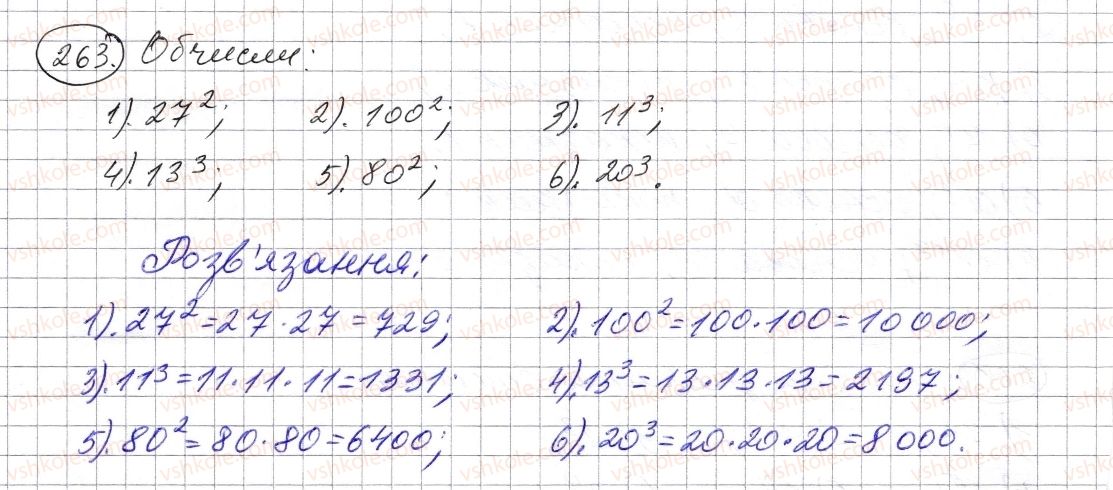 263. Обчисли:
1). 27²; 2). 100²; 3). 11³;
4). 13³; 5). 80²; 6). 20³.
Розв'язання:
1). 27² = 27 · 27 = 729; 2). 100² = 100 · 100 = 10 000;
3). 11³ = 11 · 11 · 11 = 1331; 4). 13³ = 13 · 13 · 13 = 2197;
5). 80² = 80 · 80 = 6400; 6). 20³ = 20 · 20 · 20 = 8 000.
vshkole.com